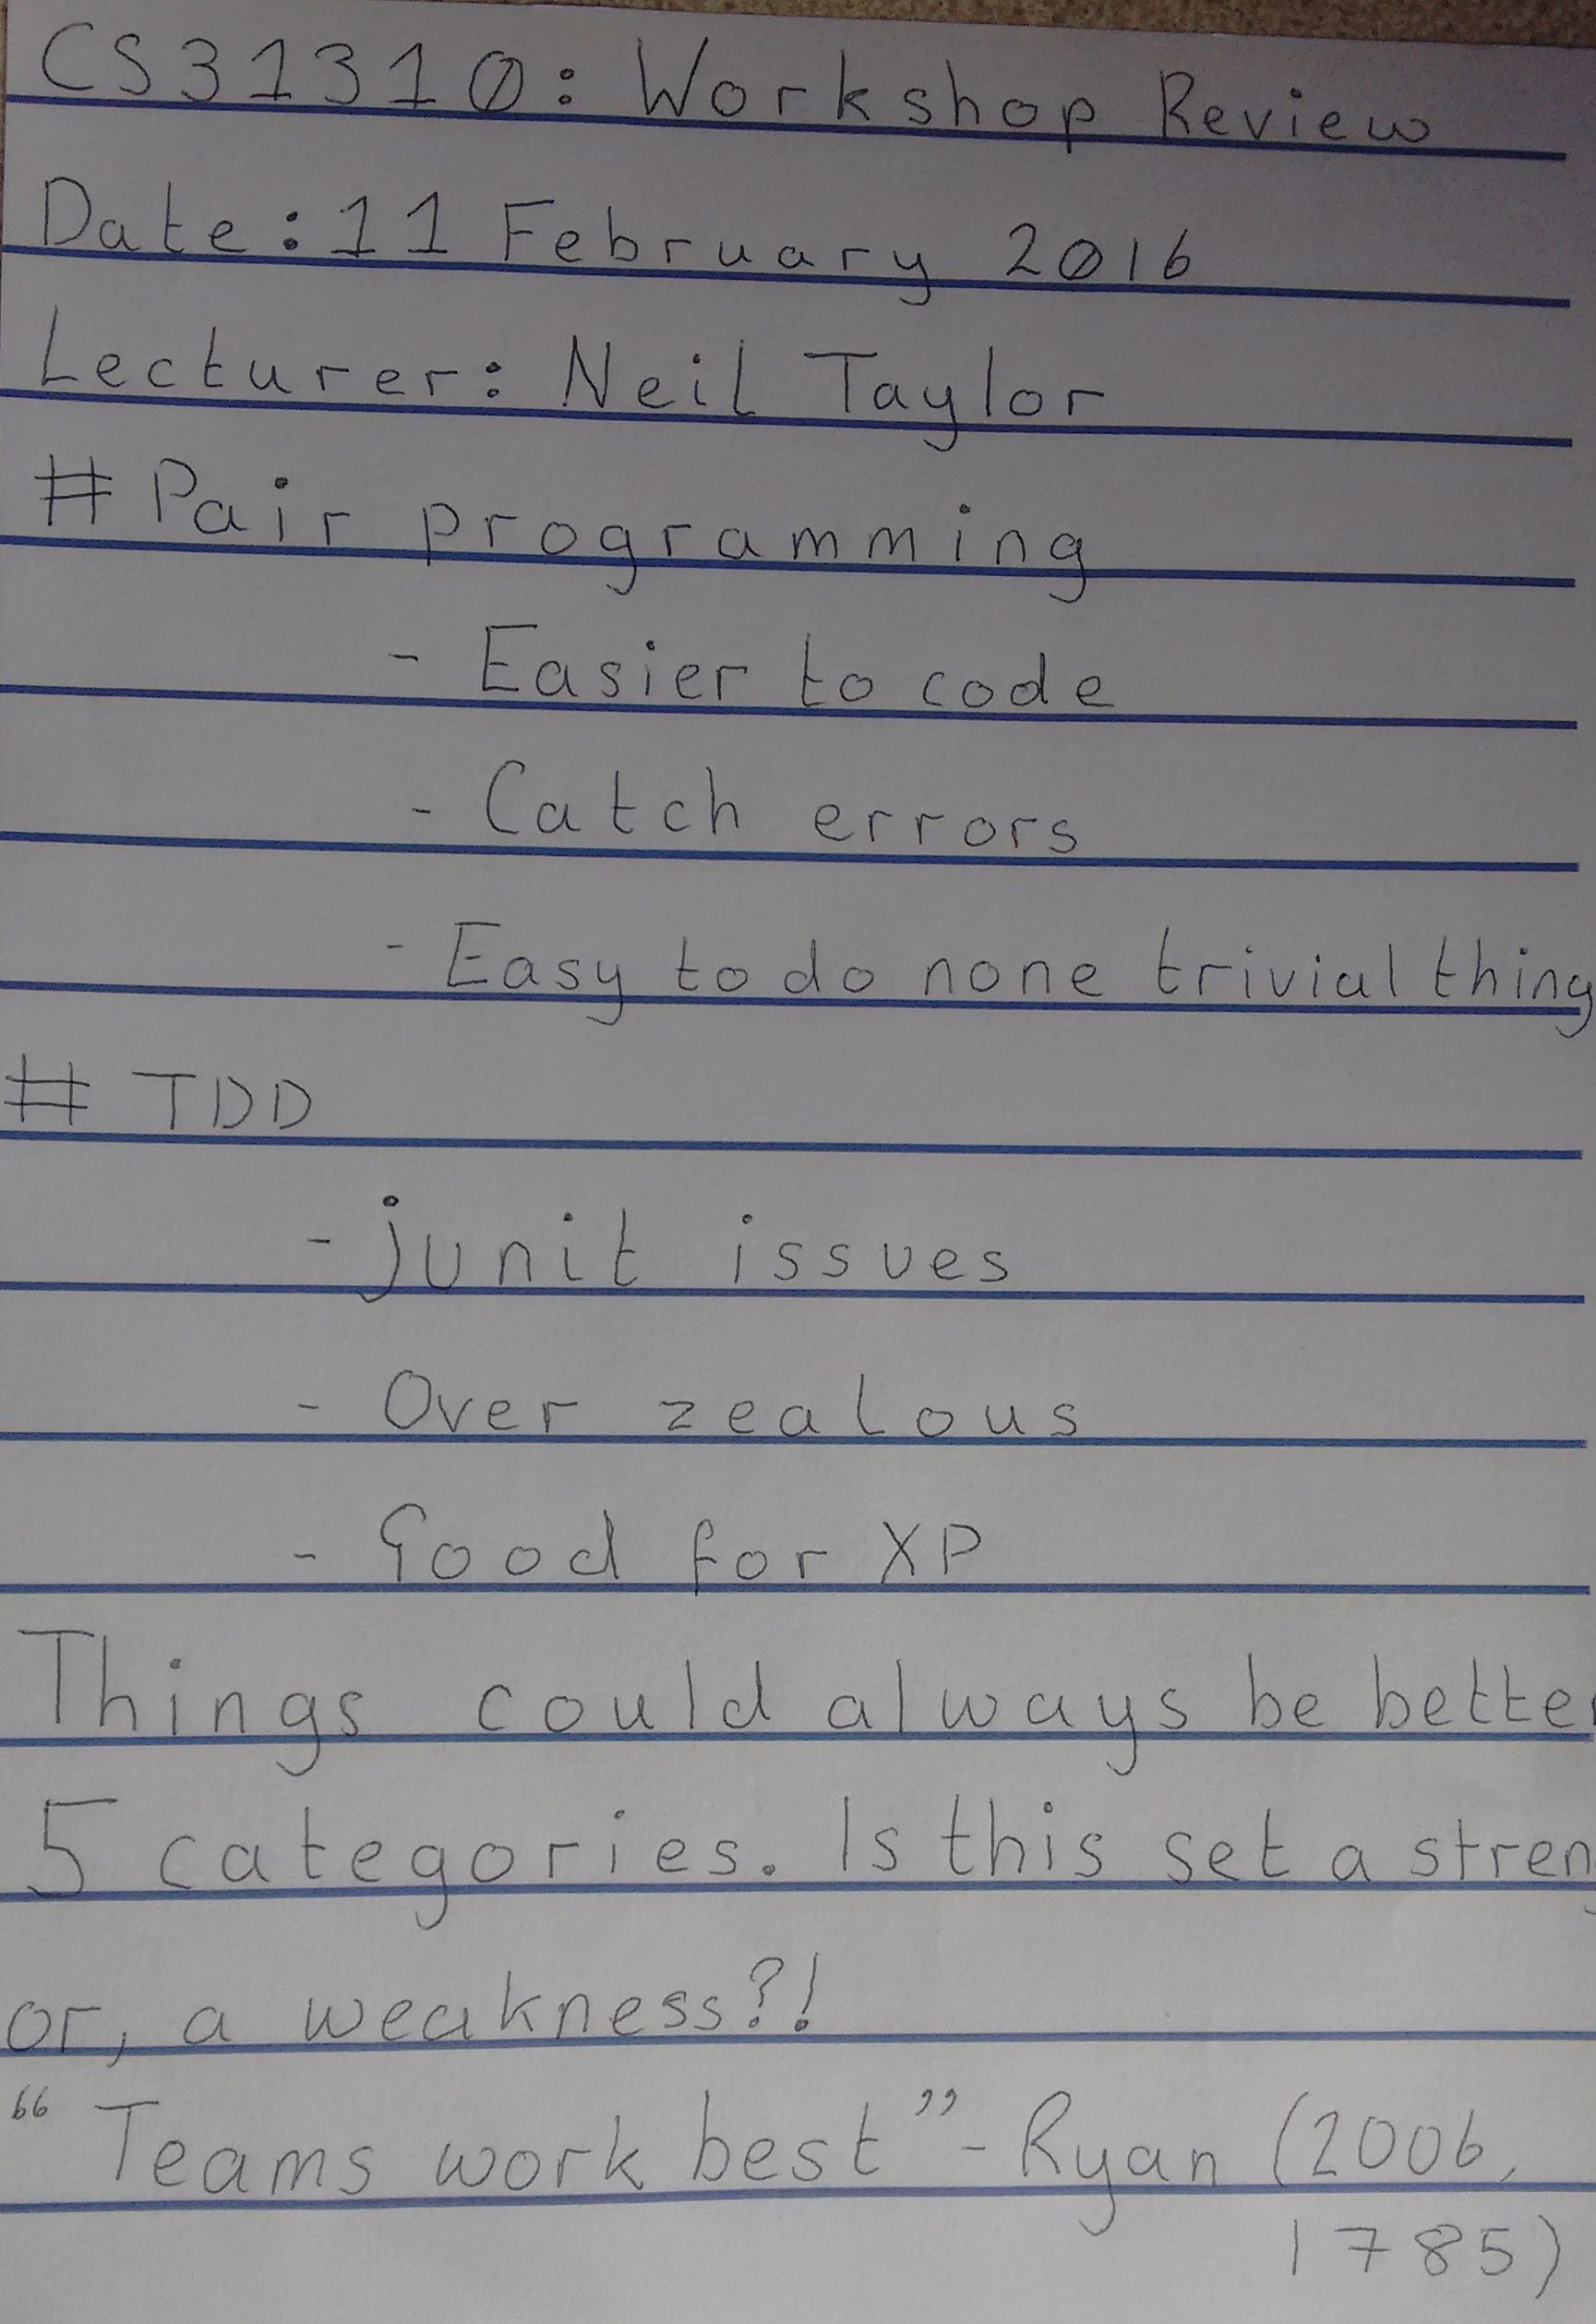 CS31310: Workshop Review
Date: 11 February 2016
Lecturer: Neil Taylor
# Pair programming
- Easier to code
- Catch errors
- Easy to do none trivial thing
# TDD
- junit issues
- Over zealous
- Good for XP
Things could always be better
5 categories. Is this set a streng
or, a weakness?!
“Teams work best” - Ryan (2006,
1785)